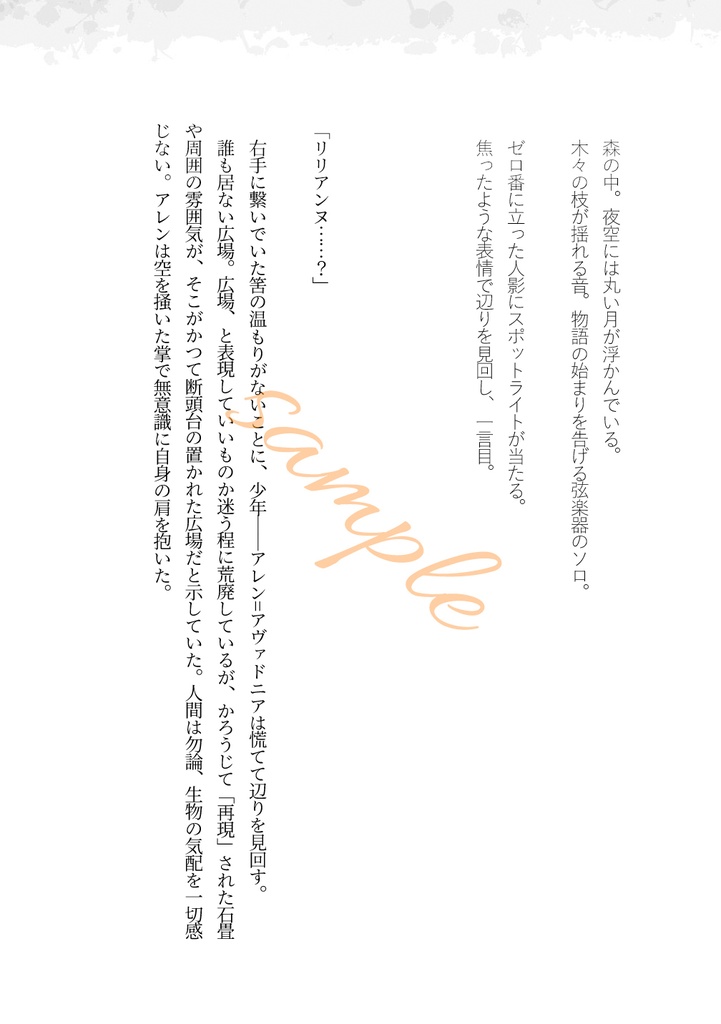 森の中。夜空には丸い月が浮かんでいる。
木々の枝が揺れる音。物語の始まりを告げる弦楽器のソロ。
ゼロ番に立った人影にスポットライトが当たる。
焦ったような表情で辺りを見回し、一言目。
「リリアンヌ……？」
右手に繋いでいた筈の温もりがないことに、少年――アレン=アヴァドニアは慌てて辺りを見回す。
誰も居ない広場。広場、と表現していいものか迷う程に荒廃しているが、かろうじて「再現」された石畳
や周囲の雰囲気が、そこがかつて断頭台の置かれた広場だと示していた。人間は勿論、生物の気配を一切感
じない。アレンは空を掻いた掌で無意識に自身の肩を抱いた。
sample